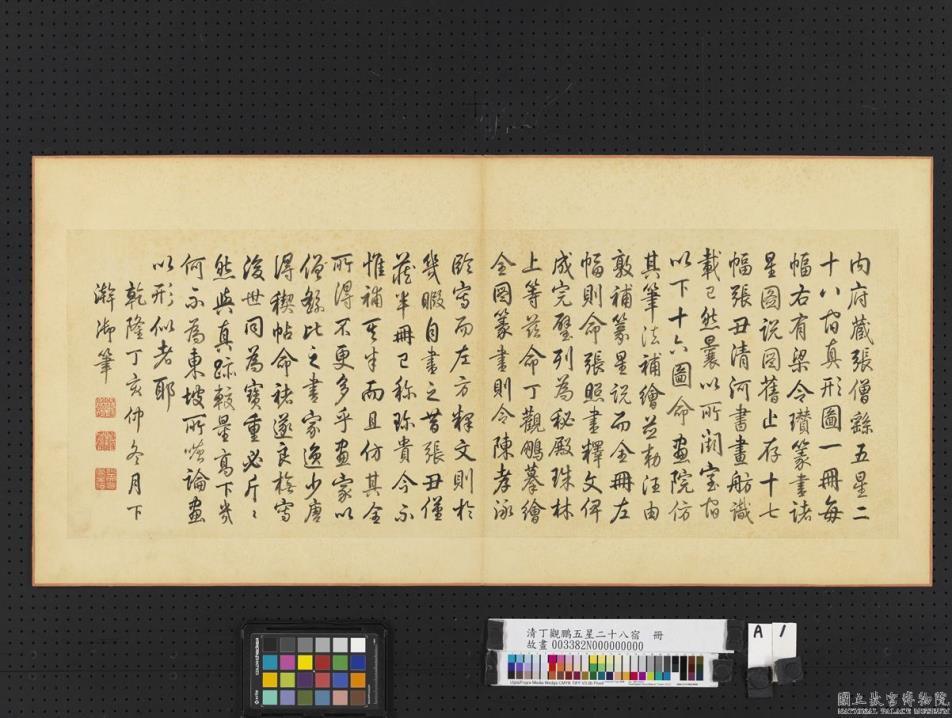 內府藏張僧繇五星二
十八宿真形圖一冊每
幅右有梁令瓚篆書諸
星圖說圖舊止存十七
幅張丑清河書畫舫識
載已然曩以所闕室宿
以下十六圖命畫院仿
其筆法補繪並勅汪由
敦補篆星說而全冊左
幅則命張照書釋文俾
成完璧列為秘殿珠林
上等茲命丁觀鵬摹繪
全圖篆書則令陳孝泳
臨寫而左方釋文則於
幾暇自書之昔張丑僅
藏半冊已稱珍貴今不
惟補其半而且仿其全
所得不更多乎畫家以
僧繇比之書家逸少唐
得稧帖命褚遂良模寫
後世同為寶重必斤〻
然與真跡較量高下幾
何不為東坡所嗤論畫
以形似者耶
乾隆丁亥仲冬月下
澣御筆
清丁觀鵬五星二十八宿 冊
故畫 003382N000000000
A 1
國立故宮博物院
NATIONAL PALACE MUSEUM